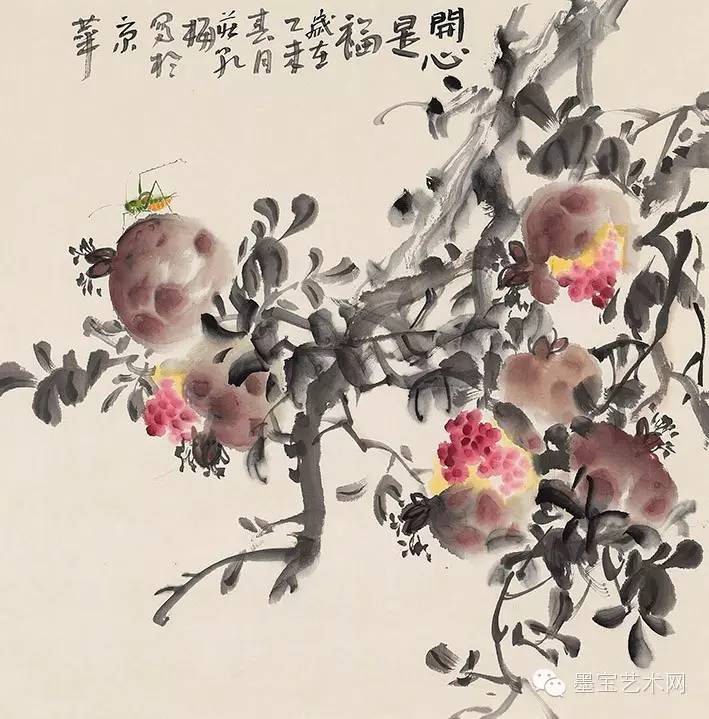 開心
是
福
歲在
乙未
春月
莊孔
梅
写於
京
華
墨宝艺术网